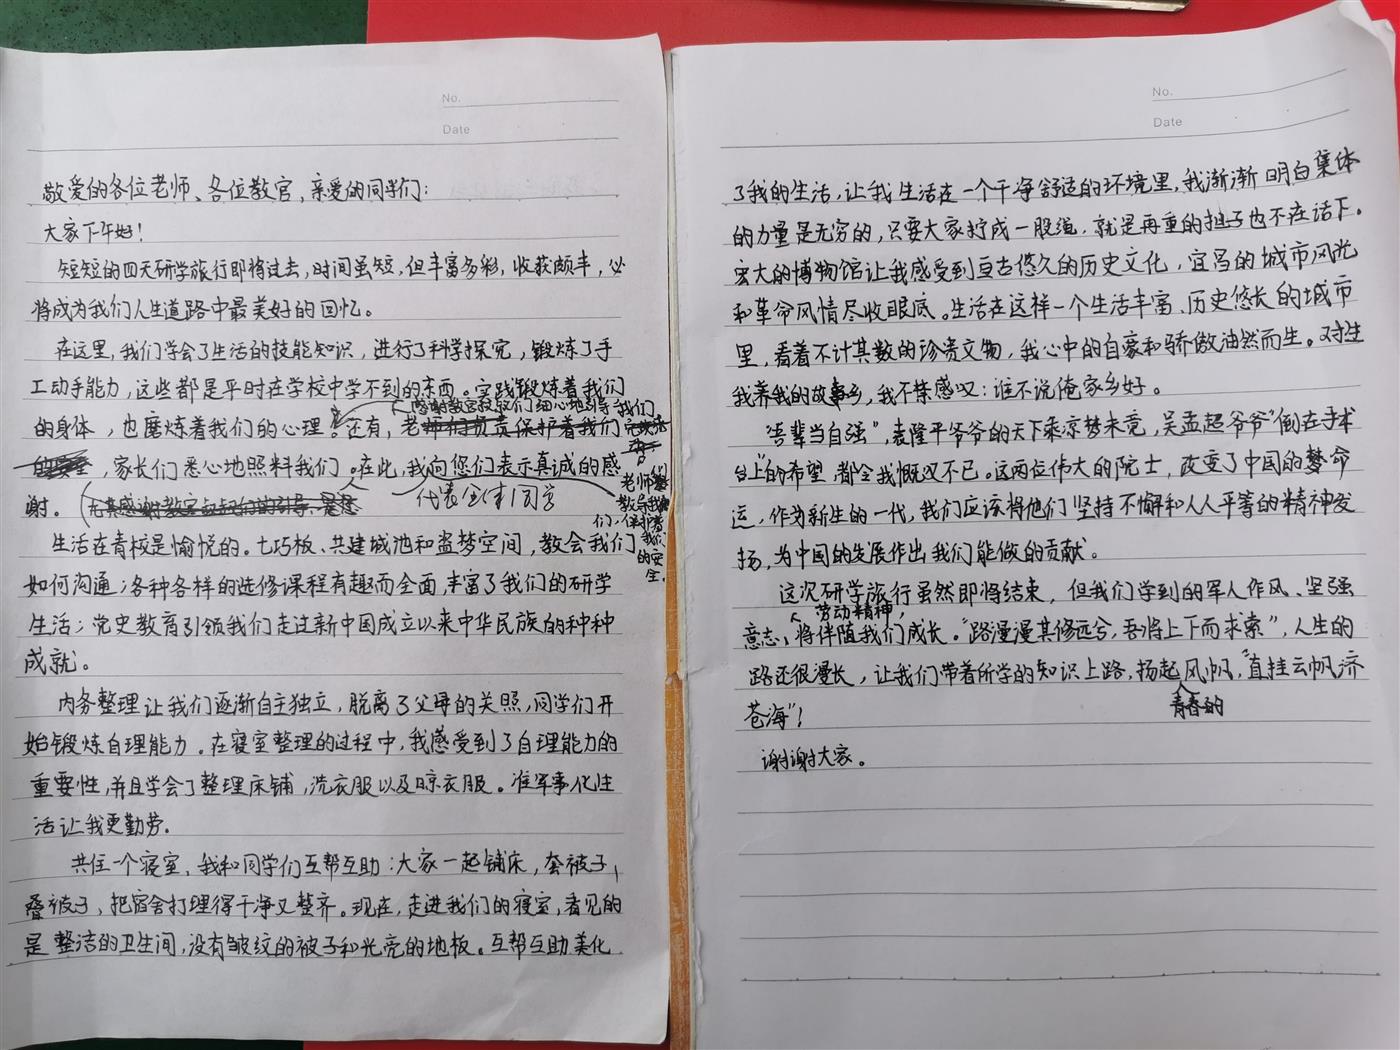 No.
Date
敬爱的各位老师、各位教官，亲爱的同学们：
大家下午好！
短短的四天研学旅行即将过去，时间虽短，但丰富多彩，收获颇丰，必
将成为我们人生道路中最美好的回忆。
在这里，我们学会了生活的技能知识，进行了科学探究，锻炼了手
工动手能力，这些都是平时在学校中学不到的东西。实践锻炼着我们
感谢教官叔叔们细心地引导我们
的身体，也磨炼着我们的心理。还有，老师
，家长们悉心地照料我们。在此，我向您们表示真诚的感
谢。
代表全体同学
老师
教导我
们，保护着
我们
的安
全。
生活在青校是愉悦的。七巧板、共建城池和盗梦空间，教会我们
如何沟通；各种各样的选修课程有趣而全面，丰富了我们的研学
生活；党史教育引领我们走过新中国成立以来中华民族的种种
成就。
内务整理让我们逐渐自主独立，脱离了父母的关照，同学们开
始锻炼自理能力。在寝室整理的过程中，我感受到了自理能力的
重要性，并且学会了整理床铺，洗衣服以及晾衣服。准军事化生
活让我更勤劳。
共住一个寝室，我和同学们互帮互助：大家一起铺床，套被子，
叠被子，把宿舍打理得干净又整齐。现在，走进我们的寝室，看见的
是整洁的卫生间，没有皱纹的被子和光亮的地板。互帮互助美化
No.
Date
了我的生活，让我生活在一个干净舒适的环境里，我渐渐明白集体
的力量是无穷的，只要大家拧成一股绳，就是再重的担子也不在话下。
宏大的博物馆让我感受到亘古悠久的历史文化，宜昌的城市风光
和革命风情尽收眼底。生活在这样一个生活丰富、历史悠长的城市
里，看着不计其数的珍贵文物，我心中的自豪和骄傲油然而生。对生
我养我的故乡，我不禁感叹：谁不说俺家乡好。
“吾辈当自强”，袁隆平爷爷的天下乘凉梦未竟，吴孟超爷爷“倒在手术
台上”的希望，都令我慨叹不已。这两位伟大的院士，改变了中国的命
运，作为新生的一代，我们应该将他们坚持不懈和人人平等的精神发
扬，为中国的发展作出我们能做的贡献。
这次研学旅行虽然即将结束，但我们学到的军人作风、坚强
劳动精神，
意志，将伴随我们成长。“路漫漫其修远兮，吾将上下而求索”，人生的
路还很漫长，让我们带着所学的知识上路，扬起风帆，“直挂云帆济
青春的
苍海”！
谢谢大家。